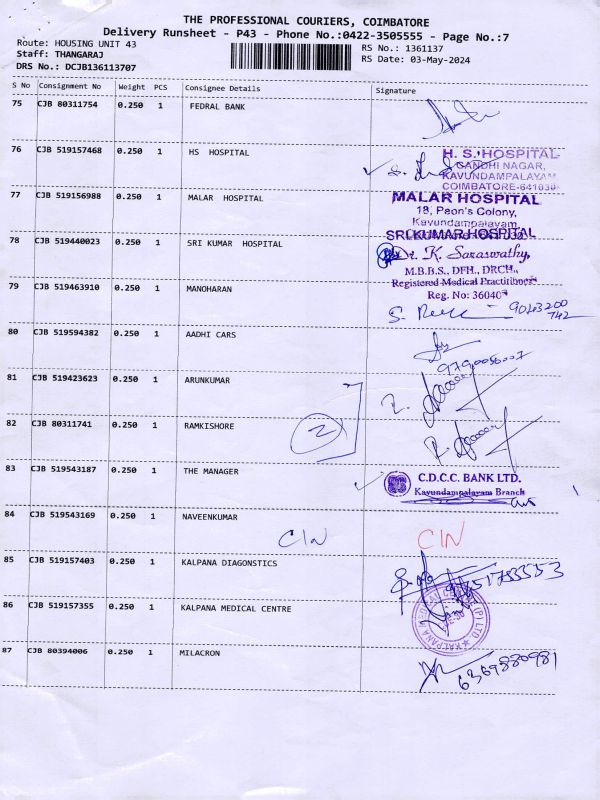 THE PROFESSIONAL COURIERS, COIMBATORE
Delivery Runsheet - P43 - Phone No.:0422-3505555 - Page No.:7
Route: HOUSING UNIT 43
Staff: THANGARAJ
DRS No.: DCJB136113707
RS No.: 1361137
RS Date: 03-May-2024
S No Consignment No Weight PCS Consignee Details Signature
75 CJB 80311754 0.250 1 FEDRAL BANK
76 CJB 519157468 0.250 1 HS HOSPITAL
H. S. HOSPITAL
GANDHI NAGAR,
KAVUNDAMPALAYAM
COIMBATORE-641030
77 CJB 519156988 0.250 1 MALAR HOSPITAL
MALAR HOSPITAL
18, Peon's Colony,
Kavundampalayam,
78 CJB 519440023 0.250 1 SRI KUMAR HOSPITAL
SRI KUMAR HOSPITAL
Dr. K. Saraswathy,
M.B.B.S., DFH., DRCH.,
Registered Medical Practitioner
Reg. No: 36040
79 CJB 519463910 0.250 1 MANOHARAN
9043200
742
80 CJB 519594382 0.250 1 AADHI CARS
81 CJB 519423623 0.250 1 ARUNKUMAR
82 CJB 80311741 0.250 1 RAMKISHORE
2
83 CJB 519543187 0.250 1 THE MANAGER
C.D.C.C. BANK LTD.
Kavundampalayam Branch
84 CJB 519543169 0.250 1 NAVEENKUMAR
CIN CIN
85 CJB 519157403 0.250 1 KALPANA DIAGONSTICS
86 CJB 519157355 0.250 1 KALPANA MEDICAL CENTRE
87 CJB 80394006 0.250 1 MILACRON
6369880981